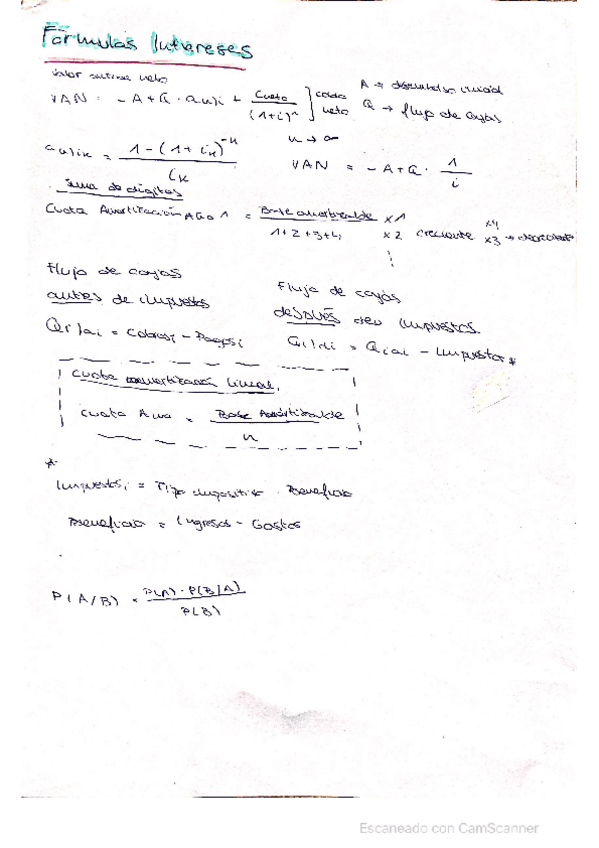 Formulas Intereses
Valor neto
VAN = -A + Q · a n⌉i + Cuota / (1+i)^n ] neto
A → desembolso inicial
Q → flujo de cajas
a n⌉ik = 1 - (1 + ik)^-n / ik
n → ∞
VAN = -A + Q · 1 / i
Suma de digitos
Cuota Amortización Año 1 = Base amortizable / 1+2+3+4 x1
x2 creciente
x4
x3 → decreciente
Flujo de cajas
antes de impuestos
Qi/ai = Cobrosi - Pagosi
Flujo de cajas
después de impuestos
Qi/di = Qiai - Impuestos *
Cuota amortización lineal.
Cuota Ama = Base Amortizable / n
*
Impuestosi = Tipo impositivo · Beneficio
Beneficio = Ingresos - Gastos
P(A/B) = P(A) · P(B/A) / P(B)
Escaneado con CamScanner